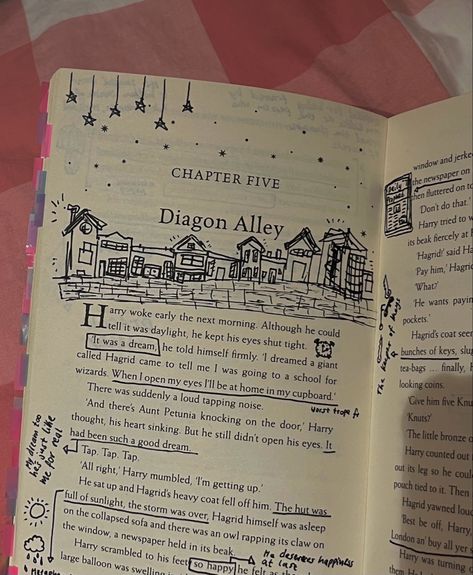 CHAPTER FIVE
Diagon Alley
Harry woke early the next morning. Although he could
tell it was daylight, he kept his eyes shut tight.
'It was a dream,' he told himself firmly. 'I dreamed a giant
called Hagrid came to tell me I was going to a school for
wizards. When I open my eyes I'll be at home in my cupboard.'
worst trope fr
There was suddenly a loud tapping noise.
'And there's Aunt Petunia knocking on the door,' Harry
thought, his heart sinking. But he still didn't open his eyes. It
had been such a good dream.
My dream too
has just like
me for real
Tap. Tap. Tap.
'All right,' Harry mumbled, 'I'm getting up.'
He sat up and Hagrid's heavy coat fell off him. The hut was
full of sunlight, the storm was over, Hagrid himself was asleep
on the collapsed sofa and there was an owl rapping its claw on
the window, a newspaper held in its beak.
He deserves happiness
at last
Harry scrambled to his feet, so happy he felt as th
large balloon was swelling
window and jerke
the newspaper on
hen fluttered on t
'Don't do that.'
Harry tried to w
its beak fiercely at H
'Hagrid!' said Ha
'Pay him,' Hagrid
'What?'
'He wants payin
pockets.'
Hagrid's coat seem
bunches of keys, slug
tea-bags ... finally, H
looking coins.
The keeper of keys
'Give him five Knut
'Knuts?'
'The little bronze o
Harry counted out
out its leg so he coul
pouch tied to it. Then
Hagrid yawned loud
'Best be off, Harry,
London an' buy all yer
Harry was turning